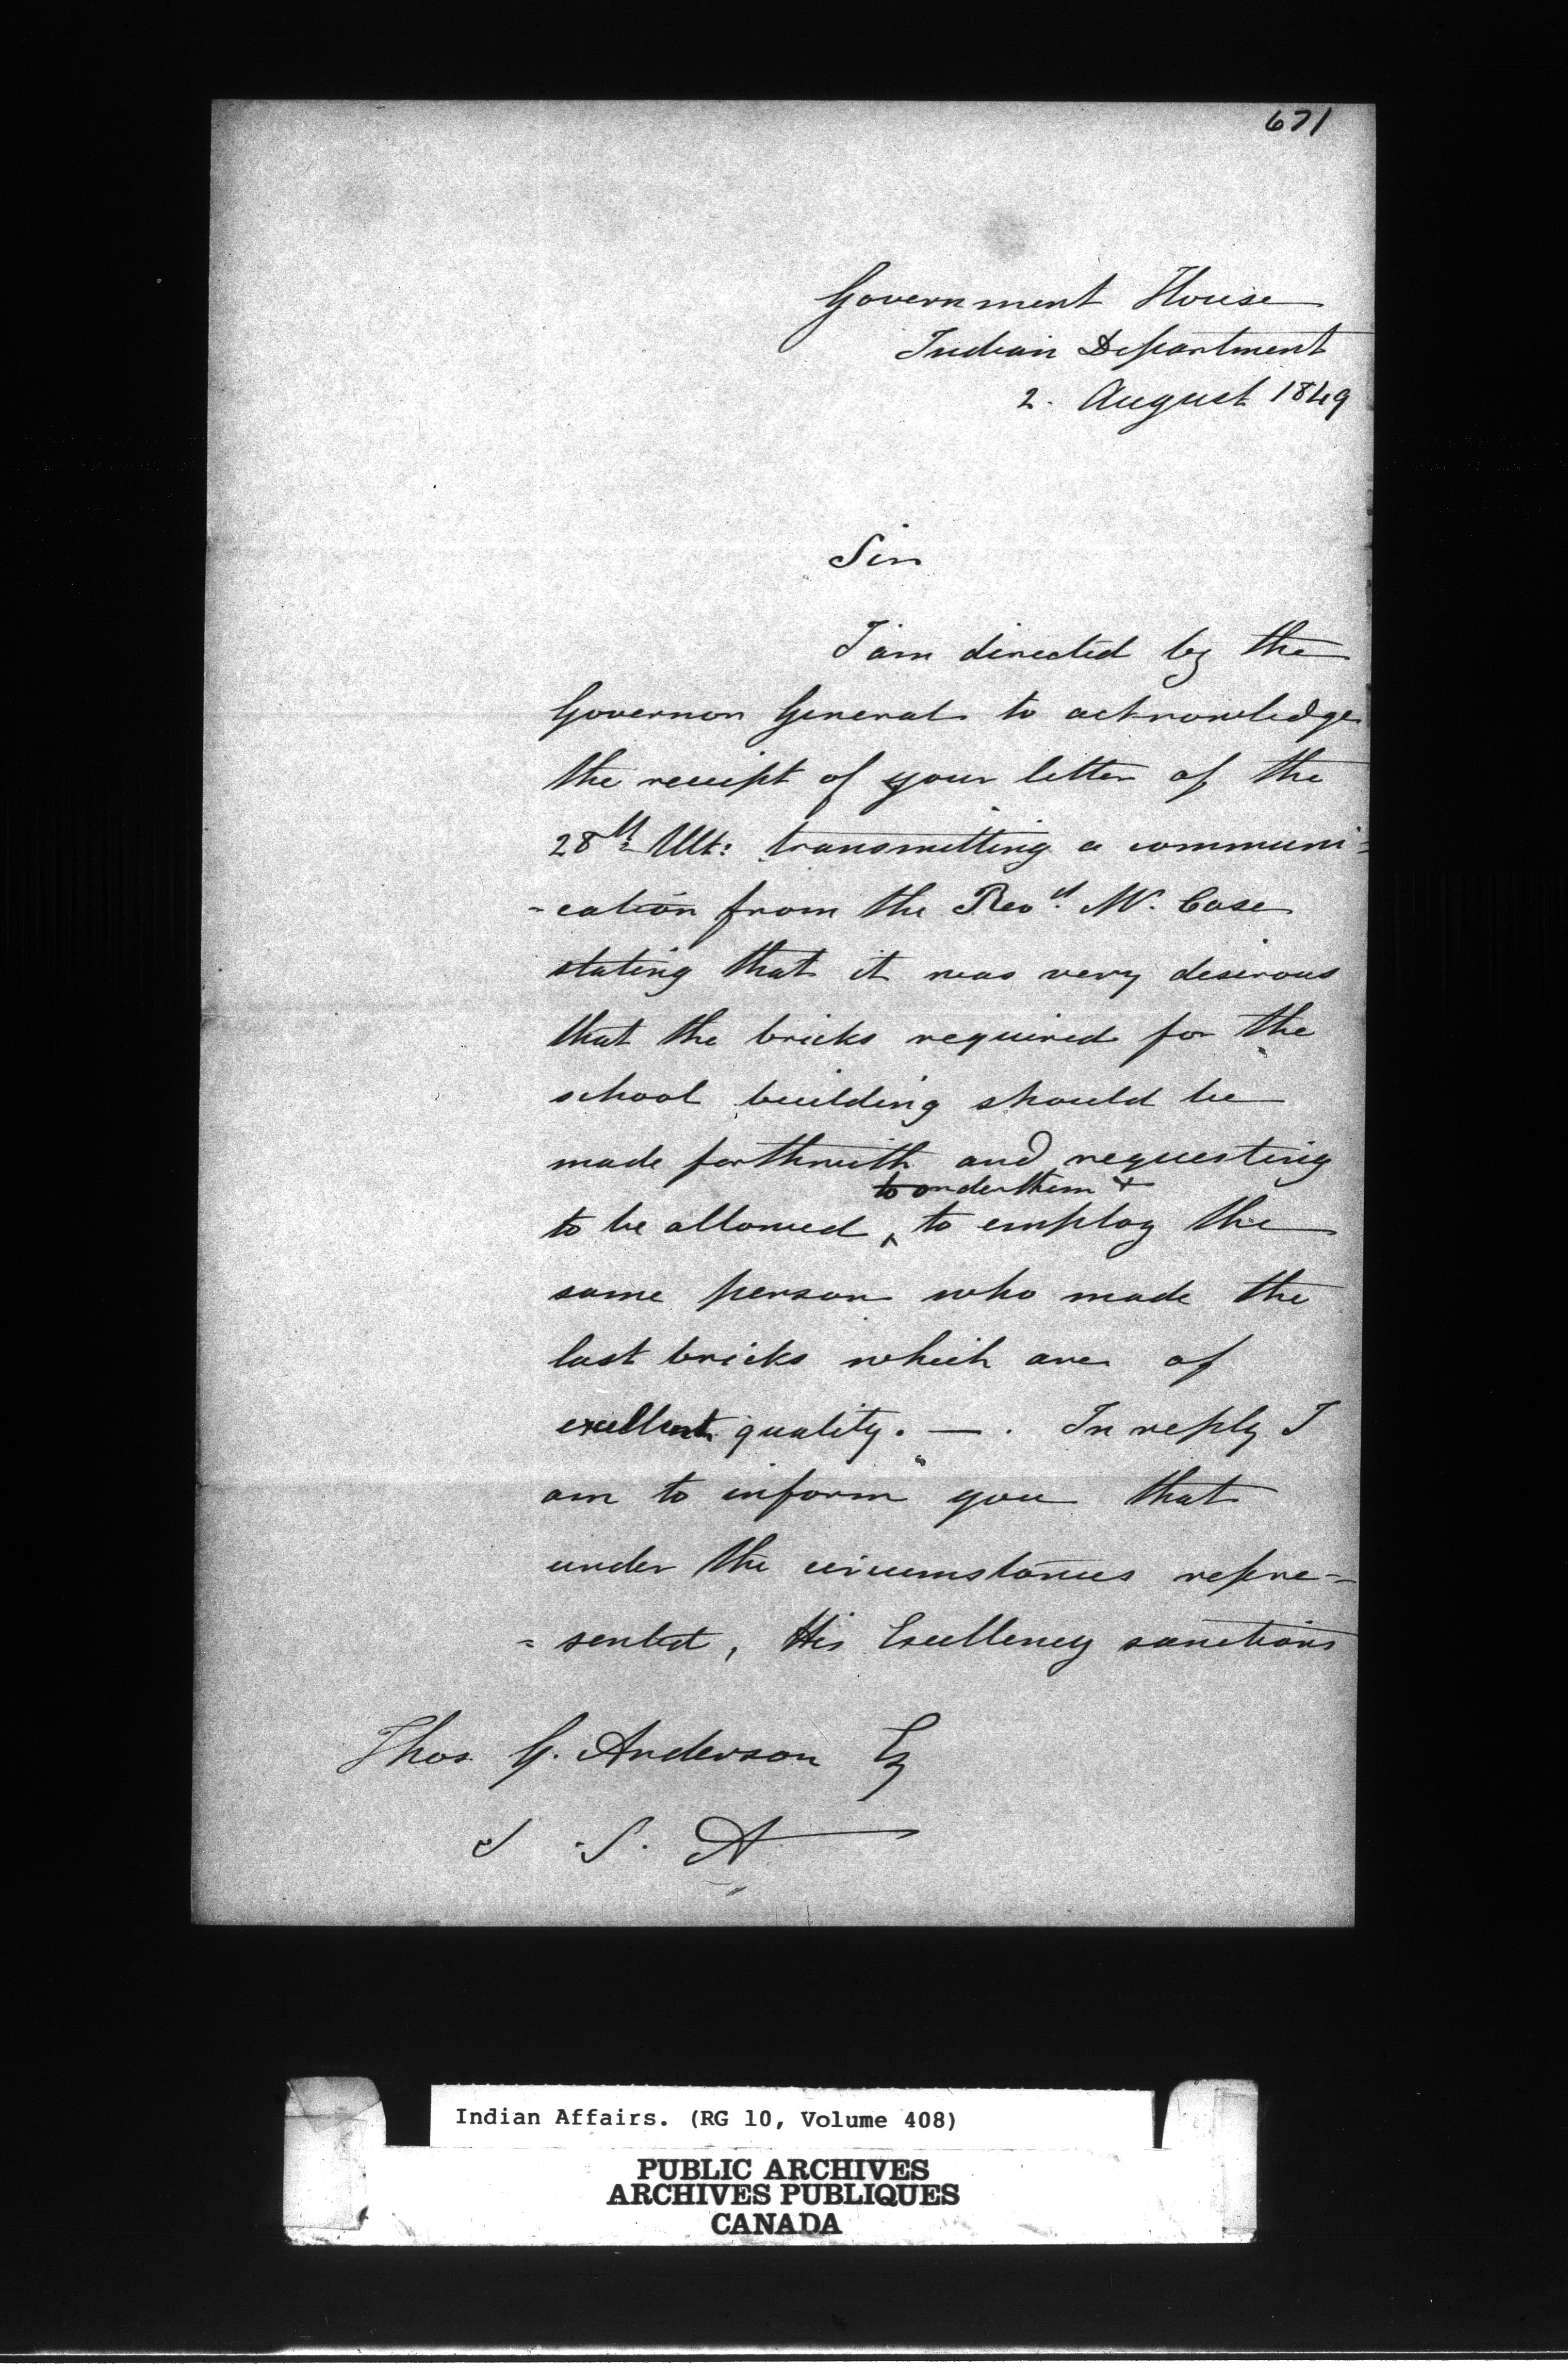 671
Government House
Indian Department
2. August 1849
Sir
I am directed by the
Governor General to acknowledge
the receipt of your letter of the
28th Ult: transmitting a communi=
-cation from the Revd. W. Case
stating that it was very desirous
that the bricks required for the
school building should be
made forthwith and requesting
to order them &
to be allowed ‸ to employ the
same person who made the
last bricks which are of
excellent quality. — . In reply I
am to inform you that
under the circumstances repre=
= sented, His Excellency sanctions
Thos. G. Anderson Esq
S. A
Indian Affairs. (RG 10, Volume 408)
PUBLIC ARCHIVES
ARCHIVES PUBLIQUES
CANADA